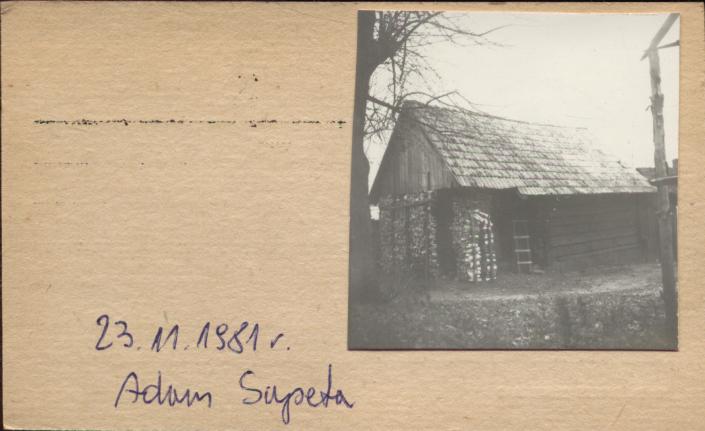 23.11.1981 r.
Adam Sapeta